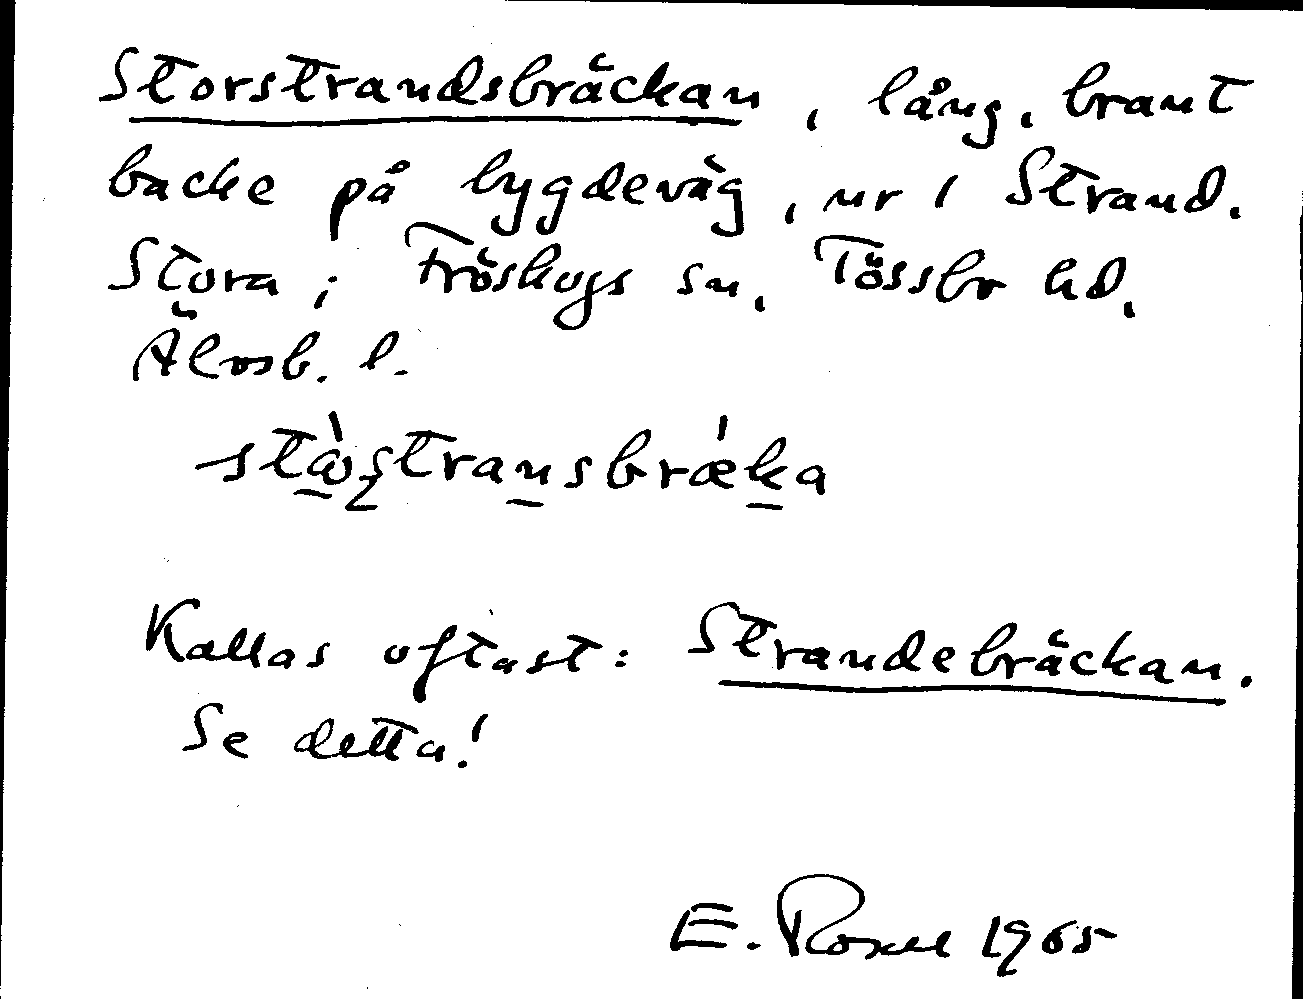 Storstrandsbräckan, lång, brant
backe på bygdeväg, nr 1 Strand.
Stora; Fröskogs sn, Tössbo hd,
Älvsb. l.
Kallas oftast: Strandebräckan.
Se detta!
E. Rosell 1965